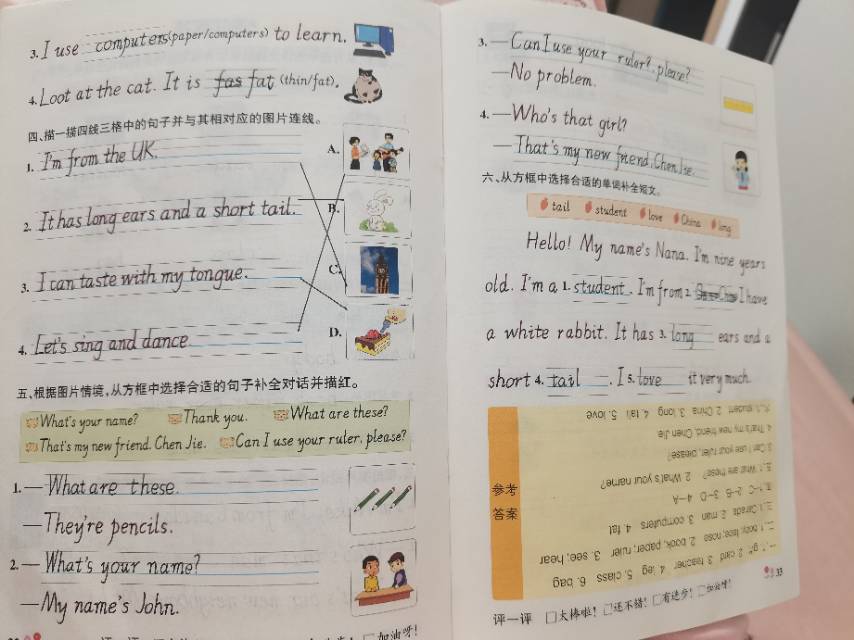 3. I use computers (paper/computers) to learn.
4. Loot at the cat. It is fas fat (thin/fat).
四、描一描四线三格中的句子并与其相对应的图片连线。
1. I'm from the UK.
A.
2. It has long ears and a short tail.
B.
3. I can taste with my tongue.
C.
4. Let's sing and dance
D.
五、根据图片情境,从方框中选择合适的句子补全对话并描红。
What's your name? Thank you. What are these?
That's my new friend, Chen Jie. Can I use your ruler, please?
1. — What are these.
— They're pencils.
2. — What's your name?
— My name's John.
加油呀!
3. — Can I use your rulor?, please?
— No problem.
4. — Who's that girl?
— That's my new friend, Chen Jie.
六、从方框中选择合适的单词补全短文。
tail student love China long
Hello! My name's Nana. I'm nine years
old. I'm a 1. student. I'm from 2. China I have
a white rabbit. It has 3. long ears and a
short 4. tail. I 5. love it very much.
参考
答案
一、1. 2. card 3. teacher 4. leg 5. class 6. bag
二、1. body; face; nose 2. book; paper; ruler 3. see; hear
三、1. Canada 2. man 3. computers 4. fat
四、1-C 2-B 3-D 4-A
五、1. What are these? 2. What's your name?
3. Can I use your ruler, please?
4. That's my new friend, Chen Jie.
六、1. student 2. China 3. long 4. tail 5. love
评一评 □太棒啦! □还不错! □有进步! □加油呀!
33